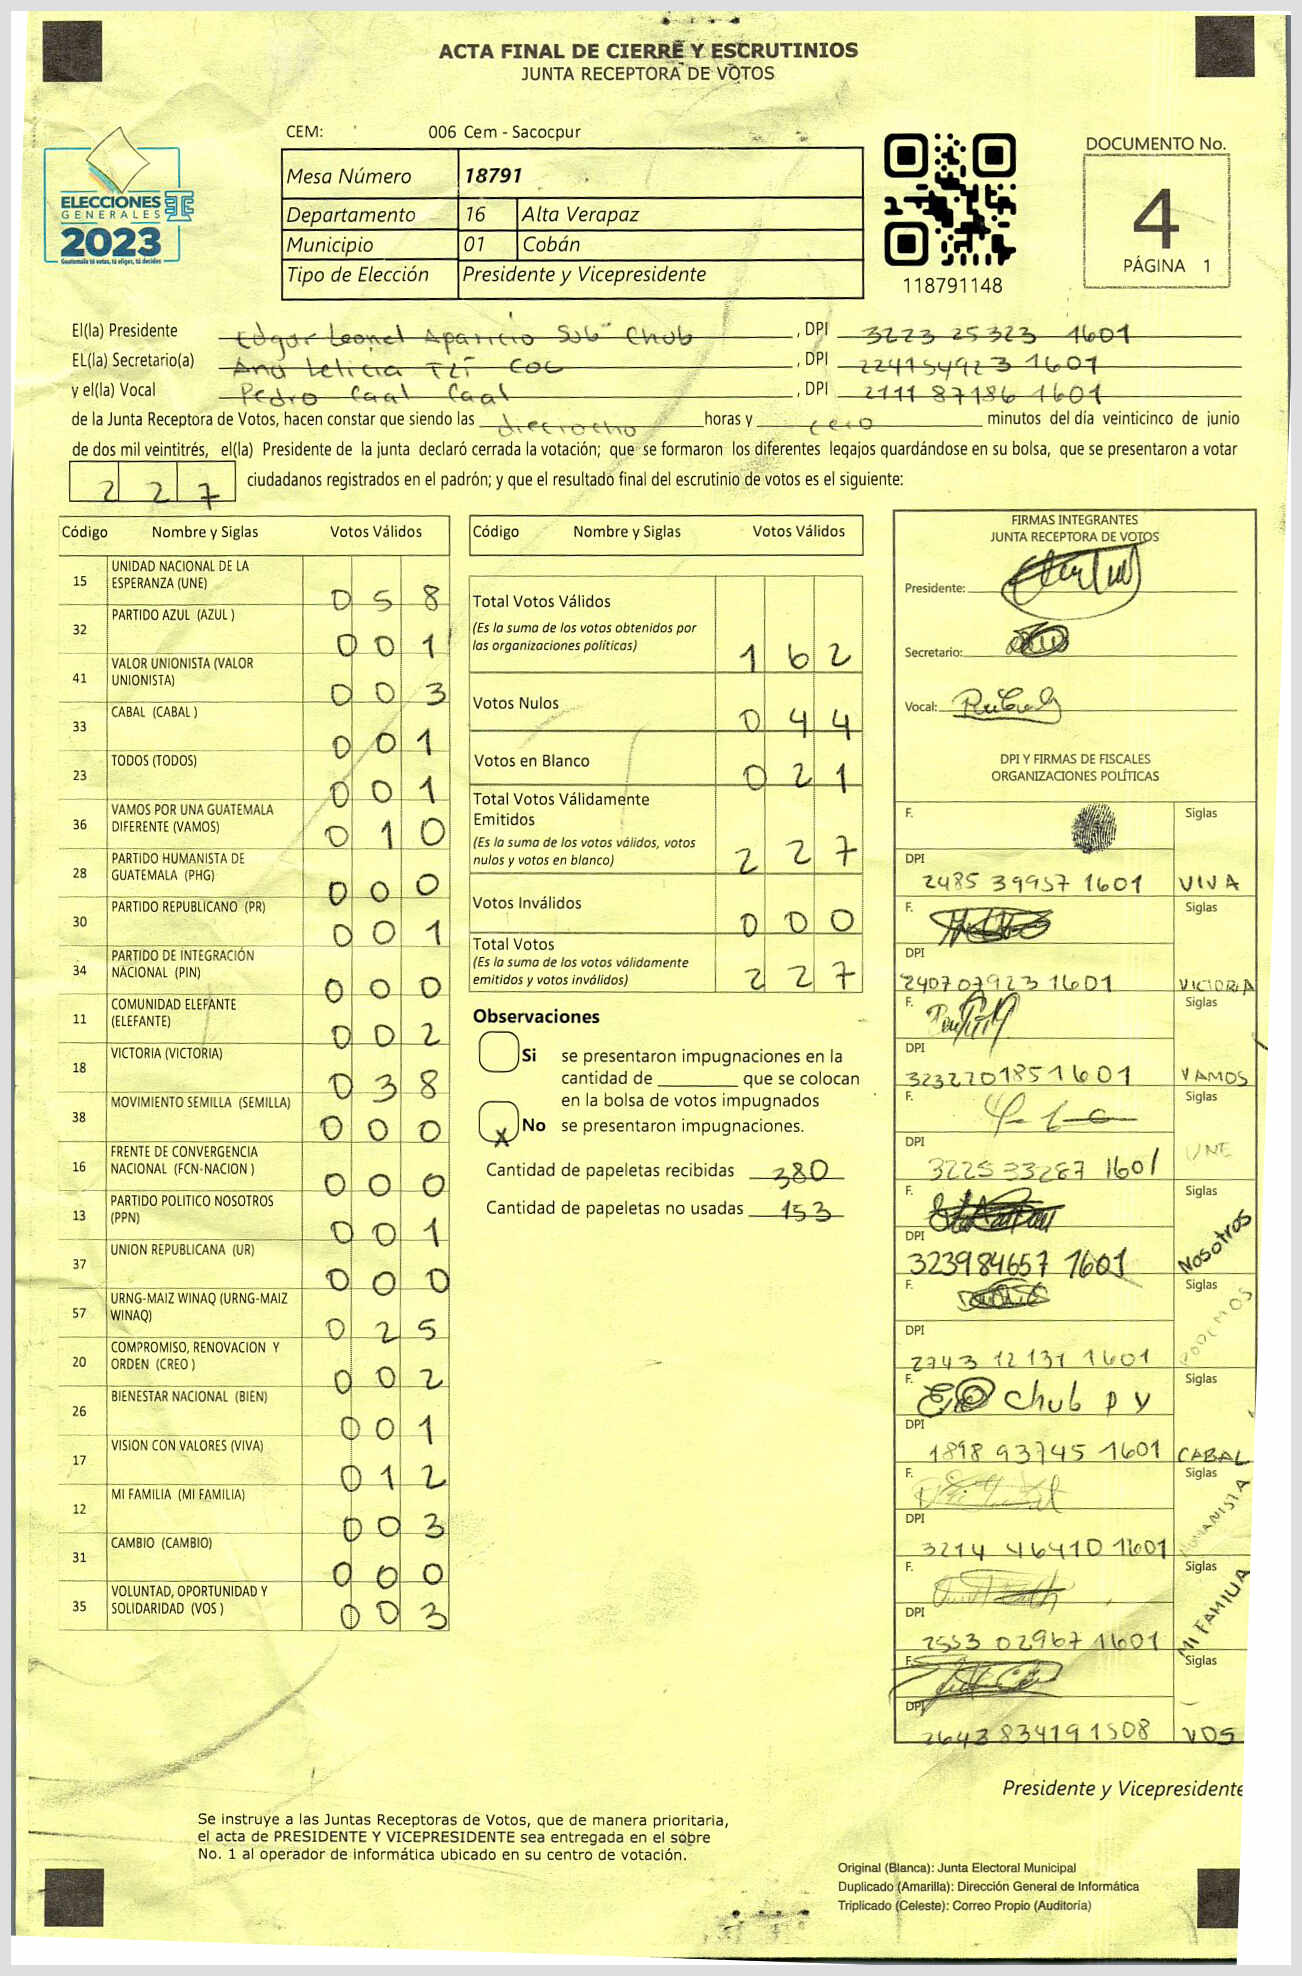 ACTA FINAL DE CIERRE Y ESCRUTINIOS
JUNTA RECEPTORA DE VOTOS
CEM: 006 Cem - Sacocpur
ELECCIONES
GENERALES
2023
Guatemala tú votas, tú eliges, tú decides
Mesa Número 18791
Departamento 16 Alta Verapaz
Municipio 01 Cobán
Tipo de Elección Presidente y Vicepresidente
118791148
DOCUMENTO No.
4
PÁGINA 1
El(la) Presidente Edgar Leonel Aparicio Sub Chub, DPI 3223 25323 1601
EL(la) Secretario(a) Ana Leticia COC, DPI 224154923 1601
y el(la) Vocal Pedro Caal Caal, DPI 2111 87186 1601
de la Junta Receptora de Votos, hacen constar que siendo las dieciocho horas y cero minutos del día veinticinco de junio
de dos mil veintitrés, el(la) Presidente de la junta declaró cerrada la votación; que se formaron los diferentes legajos quardándose en su bolsa, que se presentaron a votar
2 2 7 ciudadanos registrados en el padrón; y que el resultado final del escrutinio de votos es el siguiente:
Código Nombre y Siglas Votos Válidos
15 UNIDAD NACIONAL DE LA ESPERANZA (UNE) 0 5 8
32 PARTIDO AZUL (AZUL ) 0 0 1
41 VALOR UNIONISTA (VALOR UNIONISTA) 0 0 3
33 CABAL (CABAL ) 0 0 1
23 TODOS (TODOS) 0 0 1
36 VAMOS POR UNA GUATEMALA DIFERENTE (VAMOS) 0 1 0
28 PARTIDO HUMANISTA DE GUATEMALA (PHG) 0 0 0
30 PARTIDO REPUBLICANO (PR) 0 0 1
34 PARTIDO DE INTEGRACIÓN NACIONAL (PIN) 0 0 0
11 COMUNIDAD ELEFANTE (ELEFANTE) 0 0 2
18 VICTORIA (VICTORIA) 0 3 8
38 MOVIMIENTO SEMILLA (SEMILLA) 0 0 0
16 FRENTE DE CONVERGENCIA NACIONAL (FCN-NACION ) 0 0 0
13 PARTIDO POLITICO NOSOTROS (PPN) 0 0 1
37 UNION REPUBLICANA (UR) 0 0 0
57 URNG-MAIZ WINAQ (URNG-MAIZ WINAQ) 0 2 5
20 COMPROMISO, RENOVACION Y ORDEN (CREO ) 0 0 2
26 BIENESTAR NACIONAL (BIEN) 0 0 1
17 VISION CON VALORES (VIVA) 0 1 2
12 MI FAMILIA (MI FAMILIA) 0 0 3
31 CAMBIO (CAMBIO) 0 0 0
35 VOLUNTAD, OPORTUNIDAD Y SOLIDARIDAD (VOS ) 0 0 3
Código Nombre y Siglas Votos Válidos
Total Votos Válidos
(Es la suma de los votos obtenidos por
las organizaciones políticas) 1 6 2
Votos Nulos 0 4 4
Votos en Blanco 0 2 1
Total Votos Válidamente
Emitidos
(Es la suma de los votos válidos, votos
nulos y votos en blanco) 2 2 7
Votos Inválidos 0 0 0
Total Votos
(Es la suma de los votos válidamente
emitidos y votos inválidos) 2 2 7
Observaciones
Si se presentaron impugnaciones en la
cantidad de ________ que se colocan
en la bolsa de votos impugnados
X No se presentaron impugnaciones.
Cantidad de papeletas recibidas 380
Cantidad de papeletas no usadas 153
FIRMAS INTEGRANTES
JUNTA RECEPTORA DE VOTOS
Presidente:
Secretario:
Vocal:
DPI Y FIRMAS DE FISCALES
ORGANIZACIONES POLÍTICAS
F. Siglas
DPI 2485 39957 1601 VIVA
F. Siglas
DPI 2407 07923 1601 VICTORIA
F. Siglas
DPI 3232701851601 VAMOS
F. Siglas
DPI 3225 33287 1601 UNE
F. Siglas
DPI 323984657 1601 Nosotros
F. Siglas
DPI 2743 12131 1601 PODEMOS
F. Chub P Y Siglas
DPI 1898 93745 1601 CABAL
F. Siglas
DPI 3214 46410 1601 HUMANISTA
F. Siglas
DPI 2553 02967 1601 MI FAMILIA
F. Siglas
DPI 2643 83419 1508 VOS
Presidente y Vicepresidente
Se instruye a las Juntas Receptoras de Votos, que de manera prioritaria,
el acta de PRESIDENTE Y VICEPRESIDENTE sea entregada en el sobre
No. 1 al operador de informática ubicado en su centro de votación.
Original (Blanca): Junta Electoral Municipal
Duplicado (Amarilla): Dirección General de Informática
Triplicado (Celeste): Correo Propio (Auditoría)